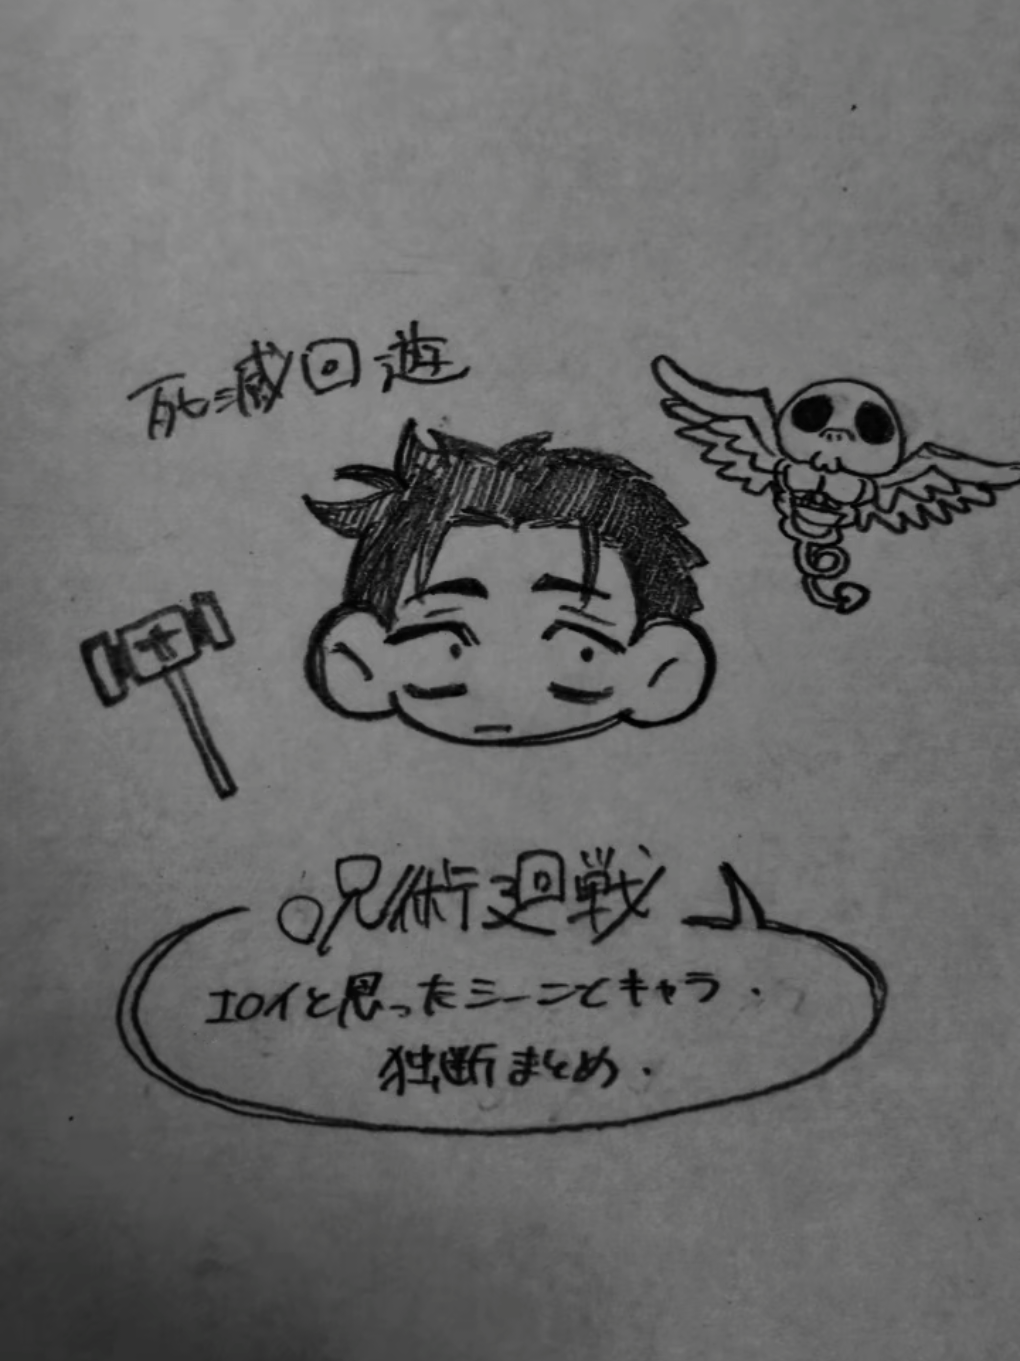 死滅回遊
呪術廻戦
エロイと思ったミーンとキャラ.
独断まとめ.